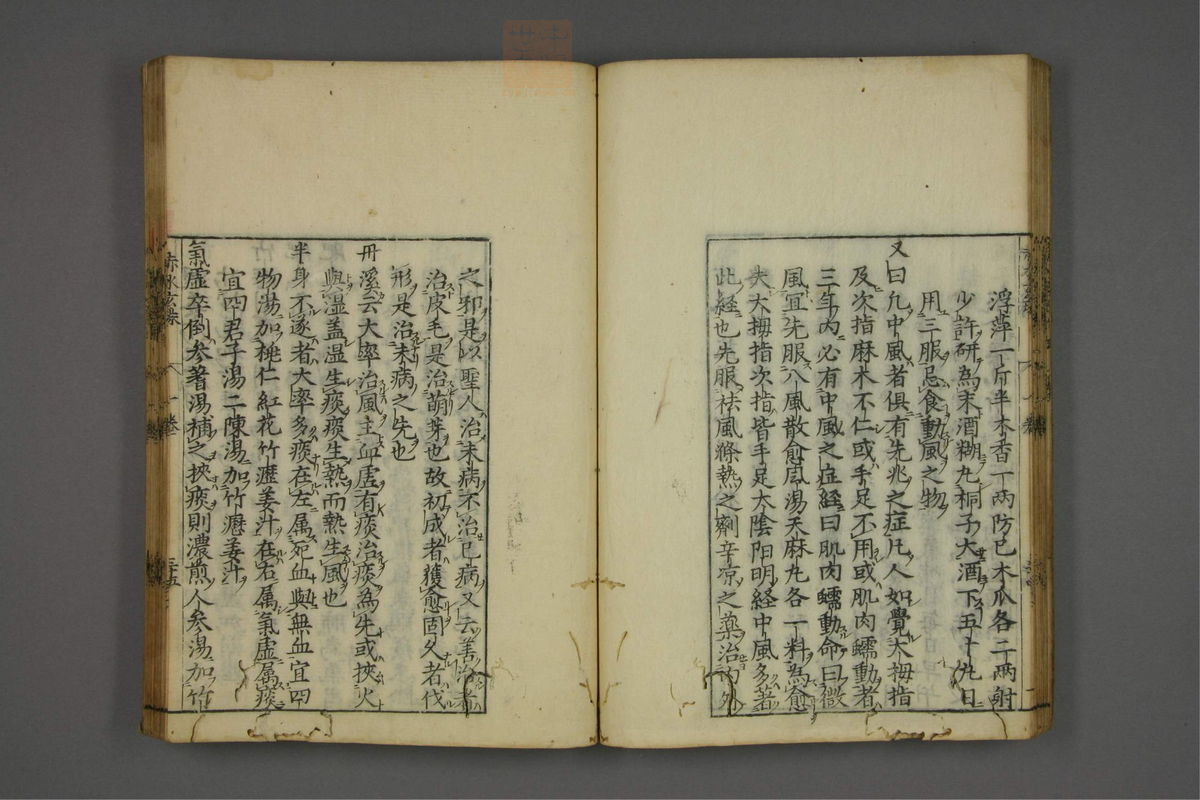 浮萍一斤半木香一両防已木瓜各二両射
少許研為末酒糊丸桐子大酒下五十丸日
用三服忌食動風之物
又曰凡中風者俱有先兆之症凡人如覺大拇指
及次指麻木不仁或手足不用或肌肉蠕動者
三年内必有中風之症経曰肌肉蠕動命曰微
風宜先服八風散愈風湯天麻丸各一料為愈
夫大拇指次指皆手足太陰陽明経中風多著
此経也先服祛風滌熱之劑辛凉之薬治内外
之邪是以聖人治未病不治已病又云善治者
治皮毛是治萌芽也故初成者獲愈固久者伐
形是治未病之先也
丹溪云大率治風主血虚有痰治痰為先或挾火
與湿盖湿生痰痰生熱而熱生風也
半身不遂者大率多痰在左属死血與無血宜四
物湯加桃仁紅花竹瀝姜汁在右属氣虚属痰
宜四君子湯二陳湯加竹瀝姜汁
氣虚卒倒参蓍湯補之挾痰則濃煎人参湯加竹
赤水玄珠 一巻 三十五